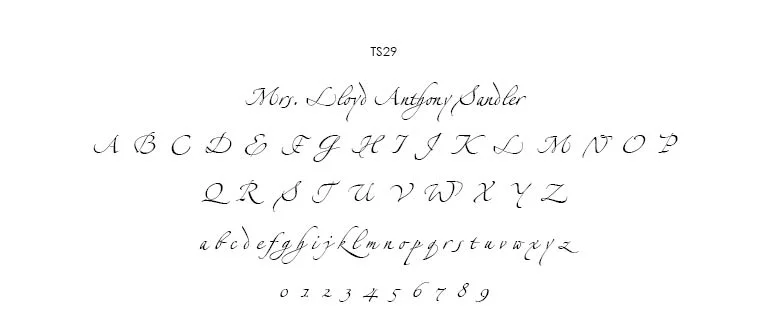 TS29
Mrs. Lloyd Anthony Sandler
A B C D E F G H I J K L M N O P
Q R S T U V W X Y Z
a b c d e f g h i j k l m n o p q r s t u v w x y z
0 1 2 3 4 5 6 7 8 9